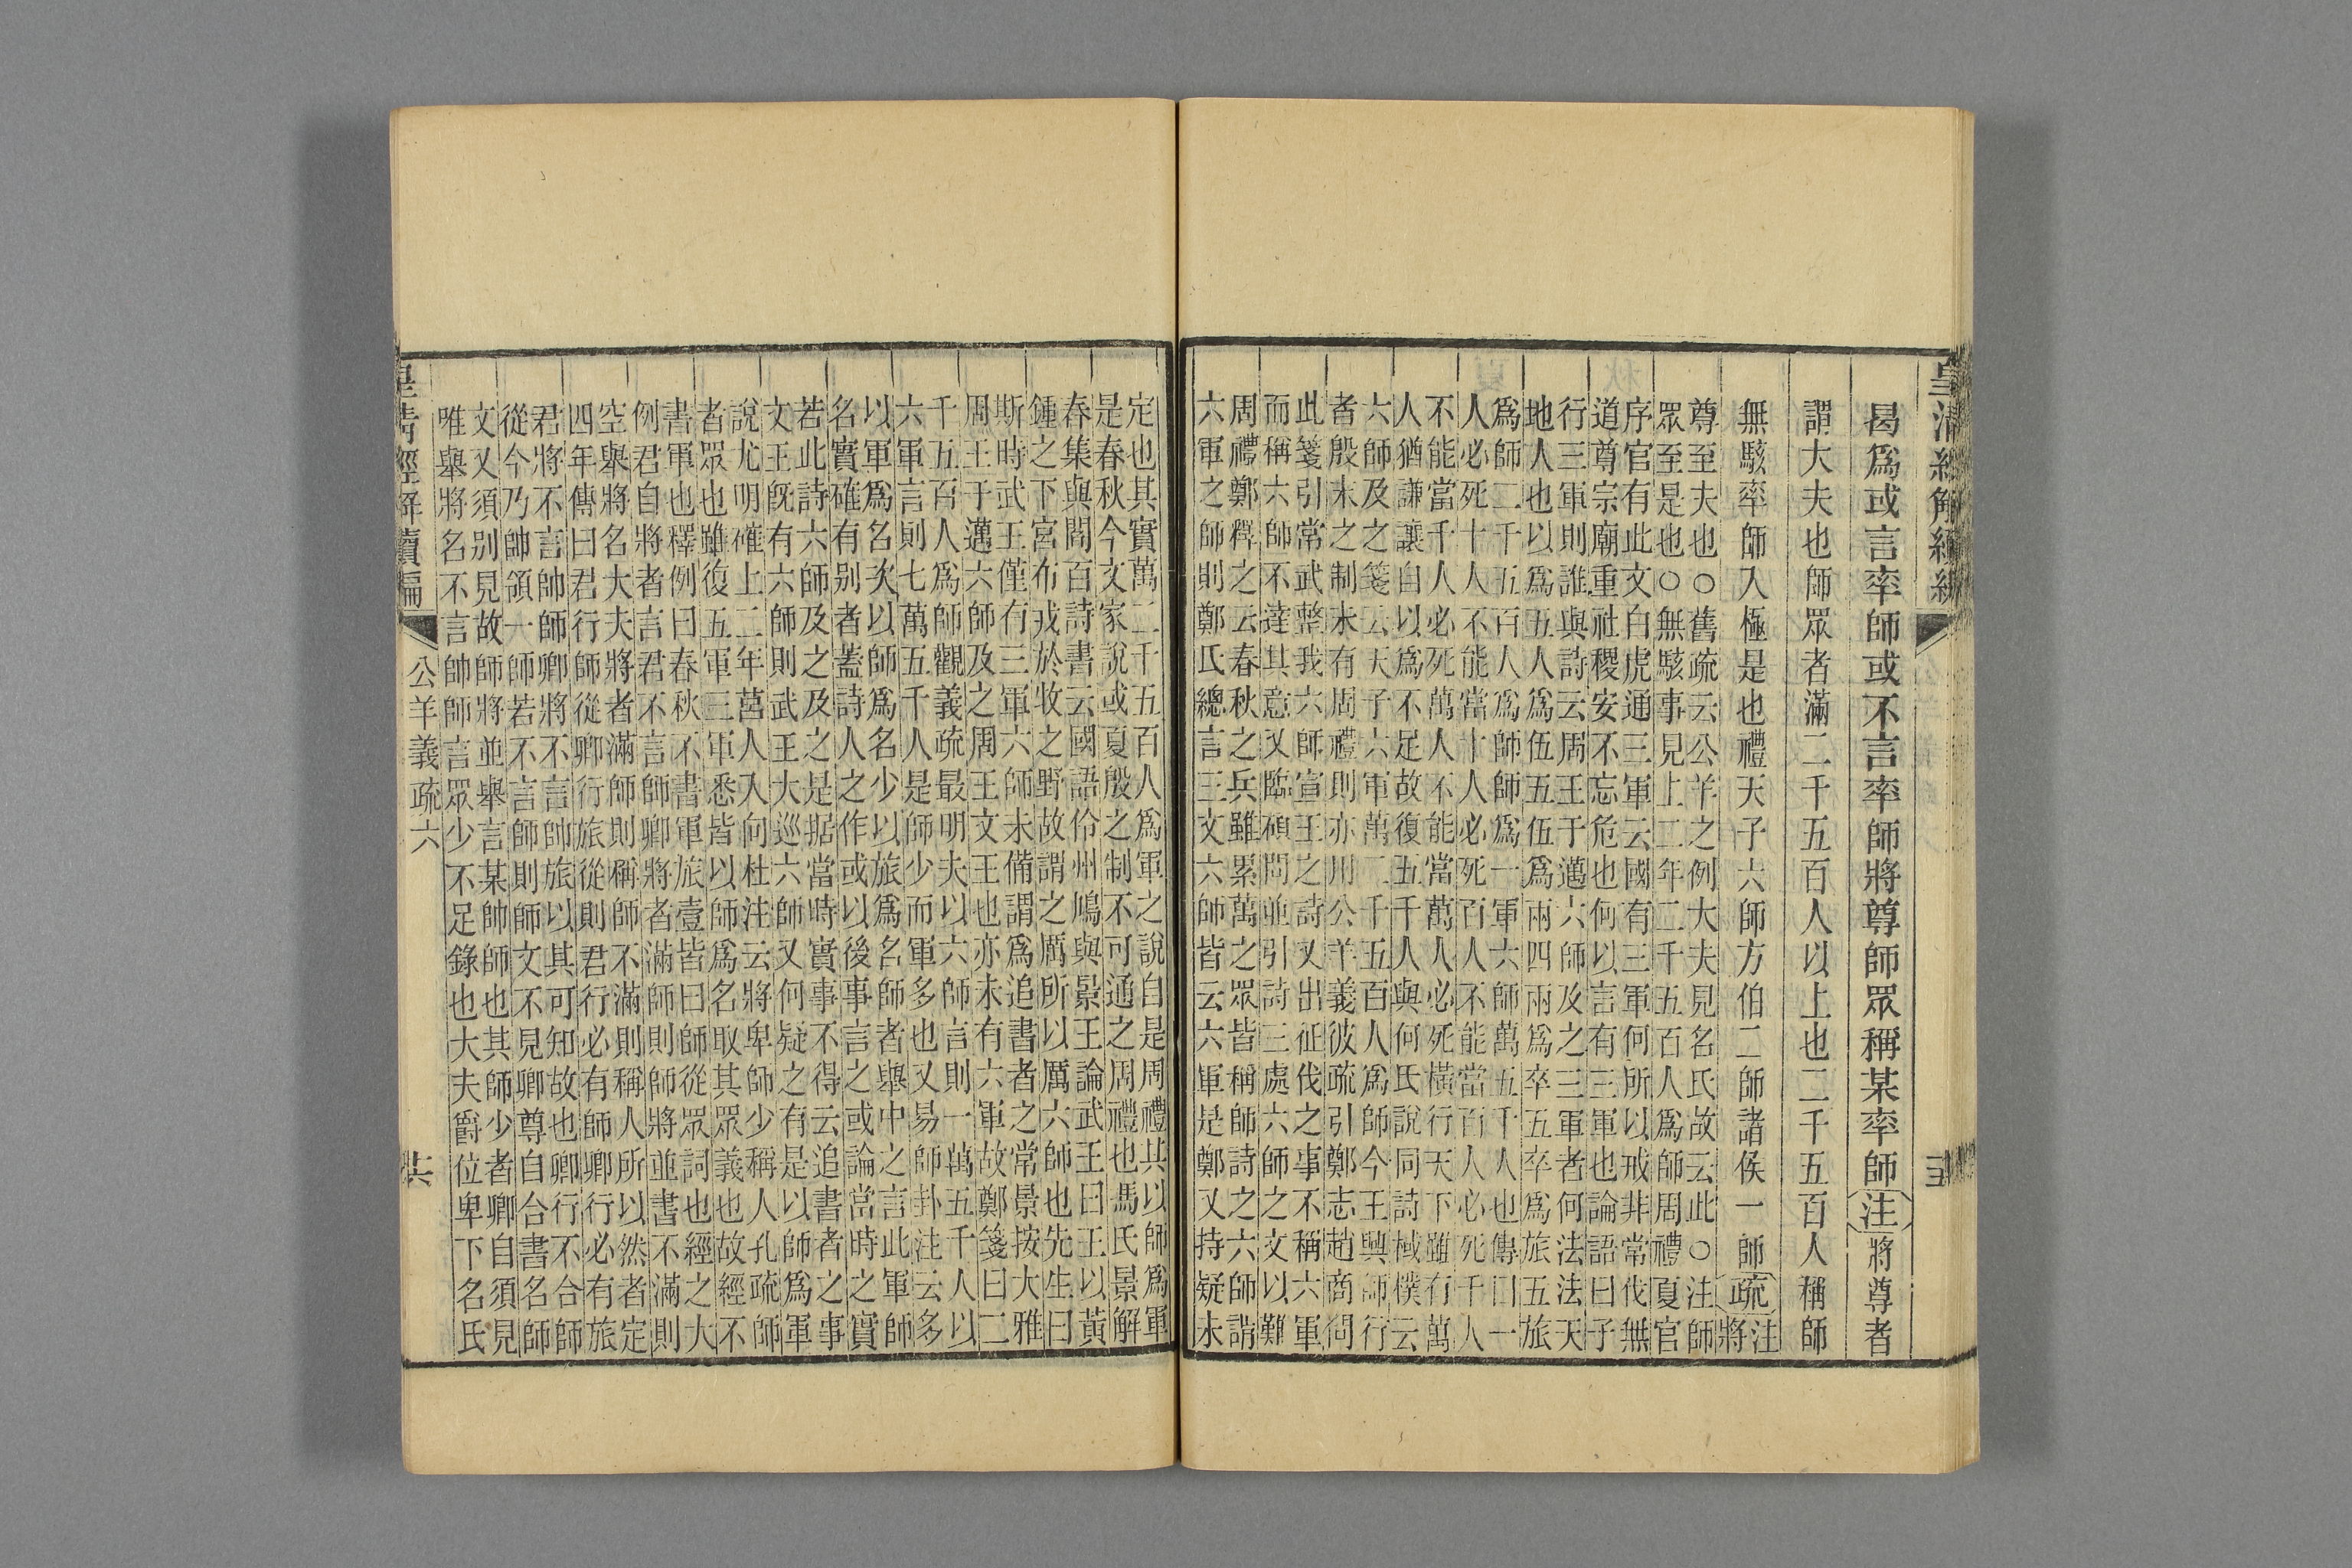 皇清經解續編
曷爲或言率師或不言率師將尊師眾稱某率師注將尊者
謂大夫也師眾者滿二千五百人以上也二千五百人稱師
無駭率師入極是也禮天子六師方伯二師諸侯一師疏注
將
尊至夫也○舊疏云公羊之例大夫見名氏故云此○注師
眾至是也○無駭事見上二年二千五百人爲師周禮夏官
序官有此文白虎通三軍云國有三軍何所以戒非常伐無
道尊宗廟重社稷安不忘危也何以言有三軍也論語曰子
行三軍則誰與詩云周王于邁六師及之三軍者何法法天
地人也以爲五人爲伍五伍爲兩四兩爲卒五卒爲旅五旅
爲師二千五百人爲師師爲一軍六師萬五千人也傳曰一
人必死十人不能當十人必死百人不能當百人必死千人
不能當千人必死萬人不能當萬人必死橫行天下雖有萬
人猶謙讓自以爲不足故復五千人與何氏說同詩棫樸云
六師及之箋云天子六軍萬二千五百人爲師今王興師行
者殷末之制未有周禮則亦用公羊義彼疏引鄭志趙商問
此箋引常武整我六師宣王之詩又出征伐之事不稱六軍
而稱六師不達其意又臨碩問並引詩三處六師之文以難
周禮鄭釋之云春秋之兵雖累萬之眾皆稱師詩之六師謂
六軍之師則鄭氏總言三文六師皆云六軍是鄭又持疑未
定也其實萬二千五百人爲軍之說自是周禮其以師爲軍
是春秋今文家說或夏殷之制不可通之周禮也馬氏景解
春集與閻百詩書云國語伶州鳩與景王論武王曰王以黃
鍾之下宮布戎於牧之野故謂之厲所以厲六師也先生曰
斯時武王僅有三軍六師未備謂爲追書者之常景按大雅
周王于邁六師及之周王文王也亦未有六軍故鄭箋曰二
千五百人爲師觀義疏最明夫以六師言則一萬五千人以
六軍言則七萬五千人是師少而軍多也又易師卦注云多
以軍爲名次以師爲名少以旅爲名師者舉中之言此軍師
名實確有別者蓋詩人之作或以後事言之或論當時之實
若此詩六師及之及之是據當時實事不得云追書者之事
文王既有六師則武王大巡六師又何疑之有是以師爲軍
說尤明確上二年莒人入向杜注云將卑師少稱人孔疏師
者眾也雖復五軍三軍悉皆以師爲名取其眾義也故經不
書軍也釋例曰春秋不書軍旅壹皆曰師從眾詞也經之大
例君自將者言君不言師卿將者滿師則師將並書不滿則
空舉將名大夫將者滿師則稱師不滿則稱人所以然者定
四年傳曰君行師從卿行旅從則君行必有師卿行必有旅
君將不言帥師卿將不言帥旅以其可知故也卿行不合師
從今乃帥領一師若不言師則師文不見卿尊自合書名師
文又須別見故師將並舉言某帥師也其師少者卿自須見
唯舉將名不言帥師言眾少不足錄也大夫爵位卑下名氏
皇清經解續編
公羊義疏六
共